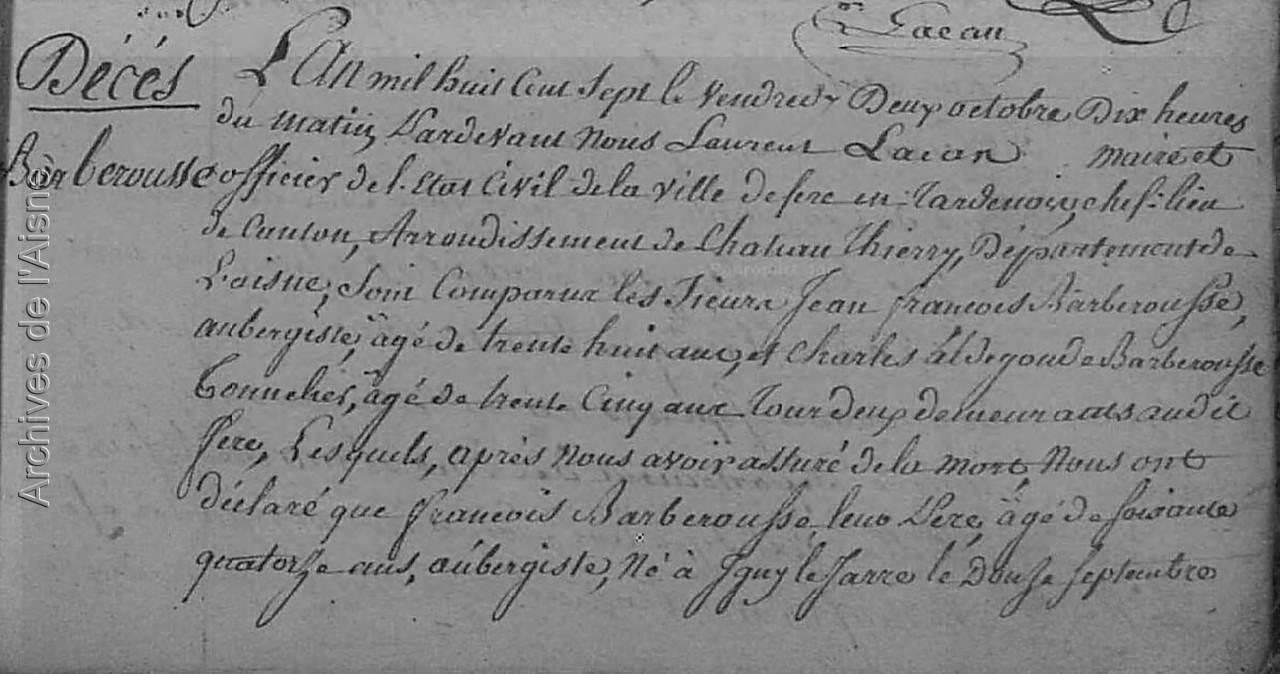 Lacan
Décés
L'An mil huit Cent Sept le Vendredy Deux octobre Dix heures
du Matin, Pardevant Nous Laurent Lacan Maire et
Barberousse
officier de l'Etat Civil de la Ville de fere en Tardenois, chef-lieu
de Canton, Arrondissement de Chateau Thierry, Département de
L'aisne, Sont Comparus les Sieurs Jean françois Barberousse,
aubergiste, agé de trente huit ans, et Charles Aldegonde Barberousse
Tonnelier, agé de trente Cinq ans Tous deux demeurants audit
fere, Lesquels, après Nous avoir assuré de la Mort, Nous ont
déclaré que françois Barberousse leur Pere, agé de soixante
quatorze ans, aubergiste, Né à Igny le Jarre le Douse septembre
Archives de l'Aisne